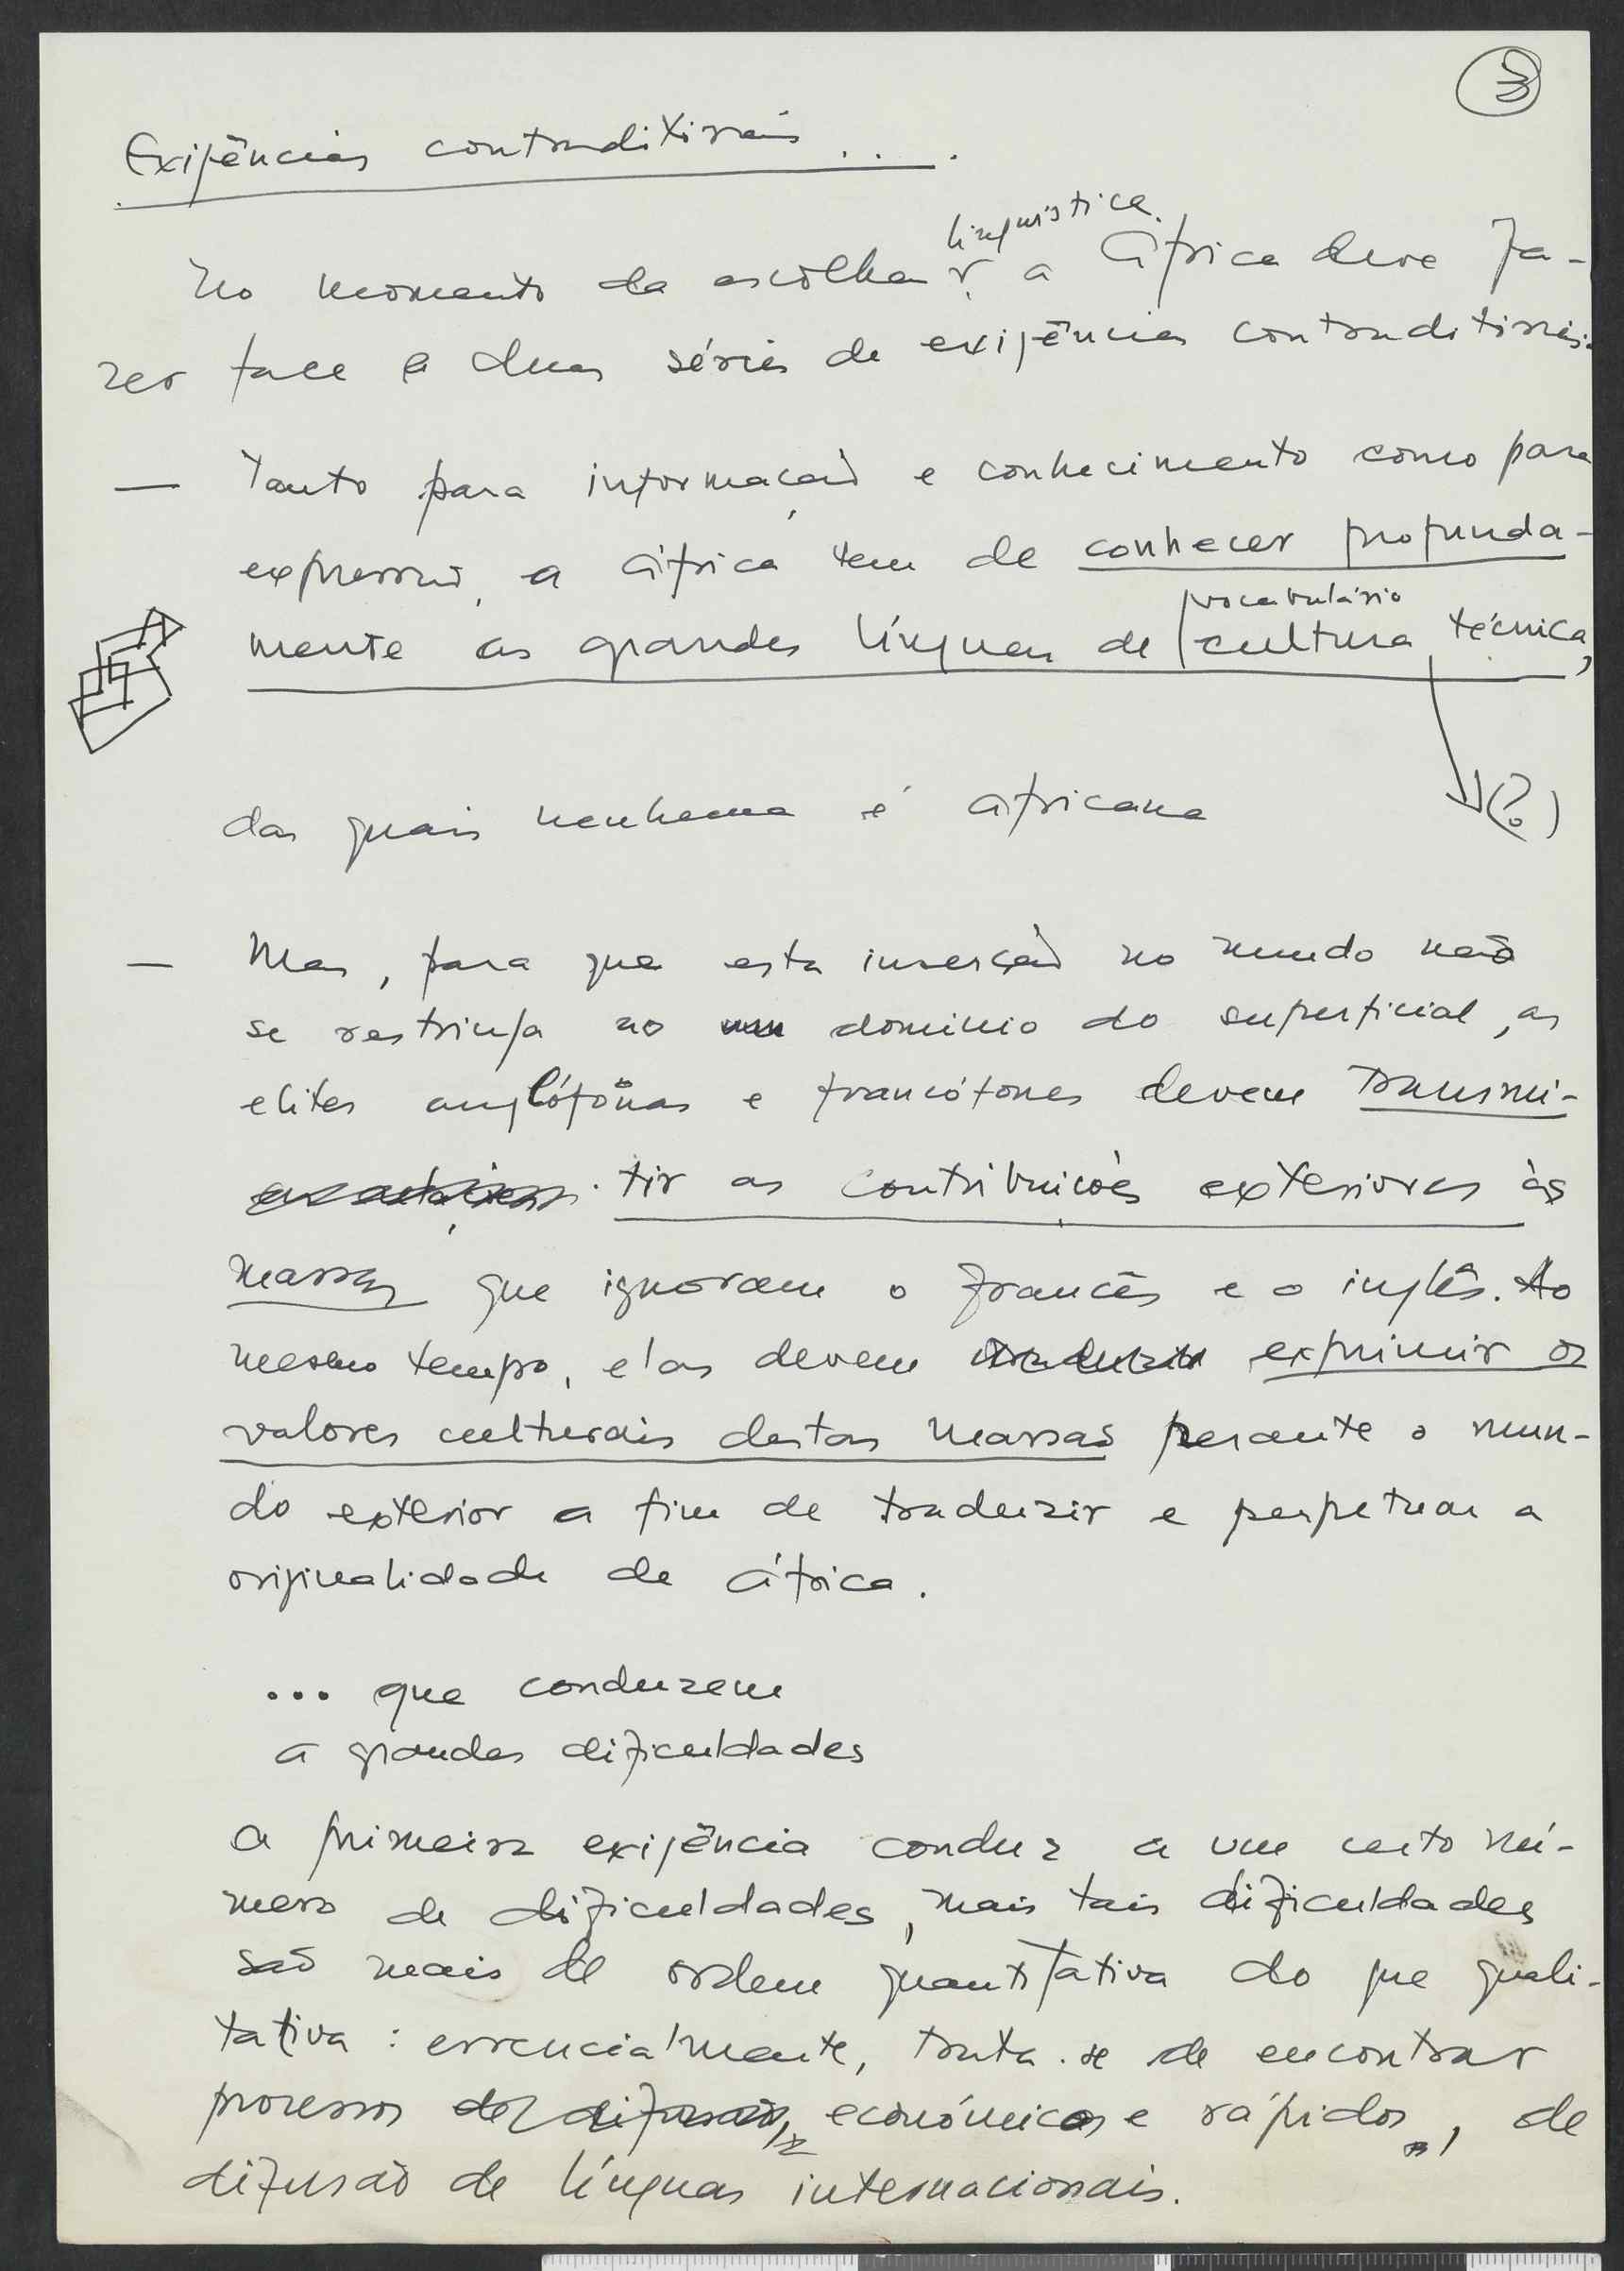 3
Exigências contraditórias . . . .
linguística
No momento da escolha a África deve fa-
zer face a duas séries de exigências contraditórias:
— Tanto para informação e conhecimento como para
expressão, a África tem de conhecer profunda-
vocabulário
mente as grandes línguas de cultura técnica,
(?)
das quais nenhuma é africana
— Mas, para que esta inserção no mundo não
se restrinja ao domínio do superficial, as
elites anglófonas e francófones devem transmi-
tir as contribuições exteriores às
massas que ignoram o francês e o inglês. Ao
mesmo tempo, elas devem traduzir exprimir os
valores culturais destas massas perante o mun-
do exterior a fim de traduzir e perpetuar a
originalidade de África.
... que conduzem
a grandes dificuldades
A primeira exigência conduz a um certo nú-
mero de dificuldades, mais tais dificuldades
são mais de ordem quantitativa do que quali-
tativa : essencialmente, trata-se de encontrar
processos de difusão, económicos e rápidos, de
difusão de línguas internacionais.